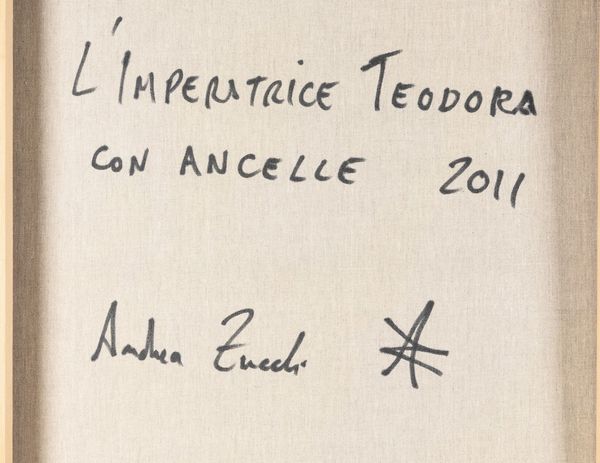 L'IMPERATRICE TEODORA
CON ANCELLE 2011
Andrea Zucchi